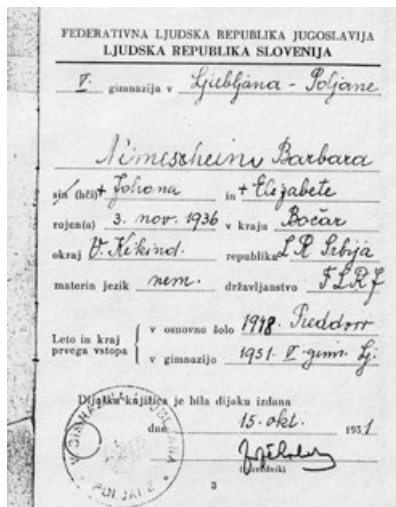 FEDERATIVNA LJUDSKA REPUBLIKA JUGOSLAVIJA
LJUDSKA REPUBLIKA SLOVENIJA
V. gimnazija v Ljubljana - Poljane
Nimeszheim Barbara
sin (hči) + Johana in + Elizabete
rojen(a) 3. nov. 1936 v kraju Bočar
okraj V. Kikind. republika L R Srbija
materin jezik nem. državljanstvo F L R J
Leto in kraj prvega vstopa
v osnovno šolo 1948. Preddvor
v gimnazijo 1951. V. gimn. Lj.
Dijaška knjižica je bila dijaku izdana
dne 15. okt. 1951
(razrednik)
V. GIMNAZIJA LJUBLJANA
POLJANE
3